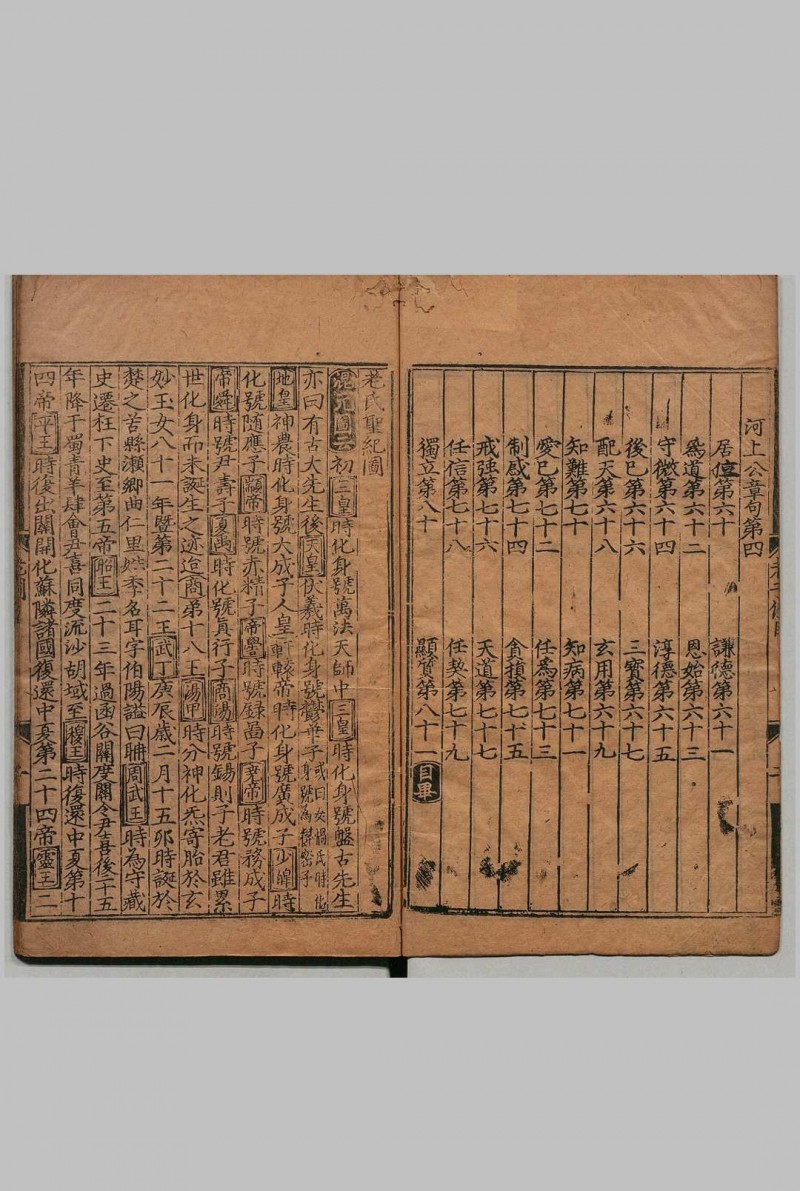 河上公章句第四
居位第六十　謙德第六十一
爲道第六十二　恩始第六十三
守微第六十四　淳德第六十五
後已第六十六　三寳第六十七
配天第六十八　玄用第六十九
知難第七十　知病第七十一
愛已第七十二　任爲第七十三
制惑第七十四　貪損第七十五
戒强第七十六　天道第七十七
任信第七十八　任契第七十九
獨立第八十　顯質第八十一　目畢
老氏聖紀圖
混元圖云初三皇時化身號萬法天師中三皇時化身號盤古先生
亦曰有古大先生後天皇伏羲時化身號鬱華子或曰女媧氏時化身號為
地皇神農時化身號大成子人皇軒轅帝時化身號廣成子少皥時
化號随應子顓帝時號赤精子帝嚳時號録啚子堯帝時號務成子
帝舜時號尹壽子夏禹時化號眞行子商湯時號錫則子老君雖累
世化身而未誕生之迹迨商第十八王湯甲時分神化炁寄胎於玄
妙玉女八十一年暨第二十二王武丁庚辰歲二月十五卯時誕於
楚之苦縣瀬鄉曲仁里姓李名耳字伯陽謚曰聃周武王時為守藏
史遷柱下史至第五帝昭王二十三年過函谷關度關令尹喜後二十五
年降于蜀青羊肆會尹喜同度流沙胡域至穆王時復還中夏第十
四帝平王時復出關開化蘇隣諸國復還中夏第二十四帝靈王二